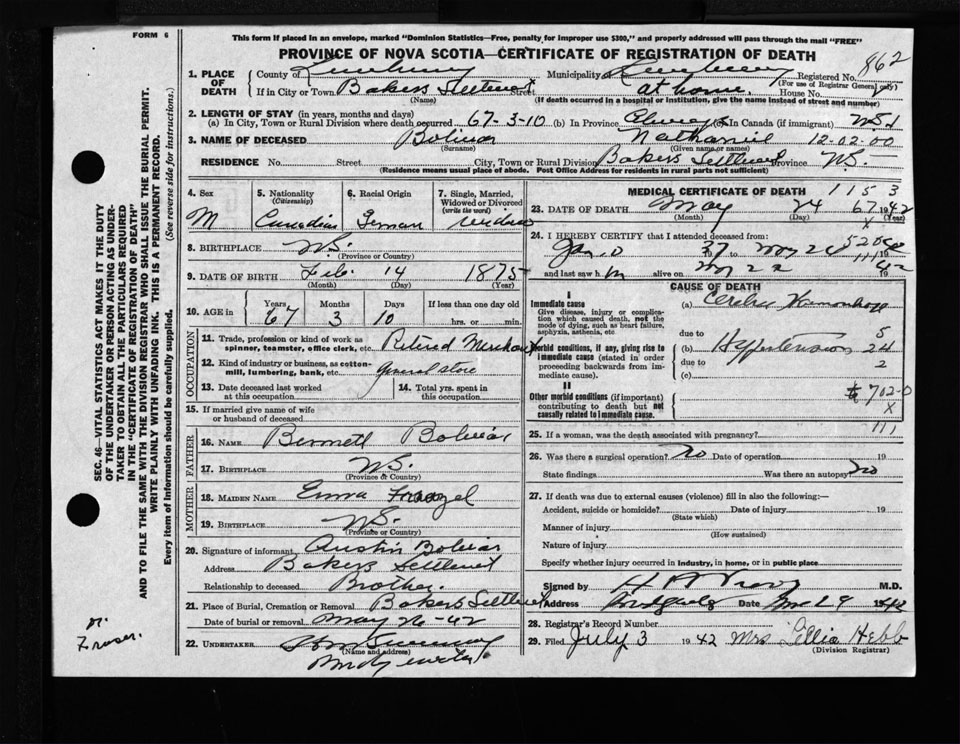 FORM 6
This form if placed in an envelope, marked "Dominion Statistics—Free, penalty for improper use $300," and properly addressed will pass through the mail "FREE"
PROVINCE OF NOVA SCOTIA—CERTIFICATE OF REGISTRATION OF DEATH
862
1. PLACE OF DEATH County of Lunenburg Municipality Lunenburg Registered No.
(For use of Registrar General only)
If in City or Town Bakers Settlement Street at home House No.
(Name) (If death occurred in a hospital or institution, give the name instead of street and number)
2. LENGTH OF STAY (in years, months and days)
(a) In City, Town or Rural Division where death occurred 67-3-10 (b) In Province Always In Canada (if immigrant)
3. NAME OF DECEASED Bolivar Nathaniel 12-02-00
(Surname) (Given name or names)
RESIDENCE No. Street City, Town or Rural Division Bakers Settlement Province N.S.
(Residence means usual place of abode. Post Office Address for residents in rural parts not sufficient)
4. Sex M
5. Nationality (Citizenship) Canadian
6. Racial Origin German
7. Single, Married, Widowed or Divorced (write the word) Widower
8. BIRTHPLACE N.S.
(Province or Country)
9. DATE OF BIRTH Feb. 14 1875
(Month) (Day) (Year)
10. AGE in Years 67 Months 3 Days 10 If less than one day old hrs. or min.
OCCUPATION
11. Trade, profession or kind of work as spinner, teamster, office clerk, etc. Retired Merchant
12. Kind of industry or business, as cotton-mill, lumbering, bank, etc. General store
13. Date deceased last worked at this occupation
14. Total yrs. spent in this occupation
15. If married give name of wife or husband of deceased
FATHER
16. NAME Bennett Bolivar
17. BIRTHPLACE N.S.
(Province or Country)
MOTHER
18. MAIDEN NAME Emma
19. BIRTHPLACE N.S.
(Province or Country)
20. Signature of informant Austin Bolivar
Address Bakers Settlement
Relationship to deceased Brother
21. Place of Burial, Cremation or Removal Bakers Settlement
Date of burial or removal May 26-42
22. UNDERTAKER
(Name and address)
MEDICAL CERTIFICATE OF DEATH 1153
23. DATE OF DEATH May 24 67 1942
(Month) (Day) (Year)
24. I HEREBY CERTIFY that I attended deceased from:
Jan. 19 37 May 24 19
and last saw h im alive on May 22 19 42
CAUSE OF DEATH
I
Immediate cause (a)
Give disease, injury or complication which caused death, not the mode of dying, such as heart failure, asphyxia, asthenia, etc.
due to 5
Morbid conditions, if any, giving rise to immediate cause (stated in order proceeding backwards from immediate cause). (b) Hypertension 24
due to 2
(c)
II
Other morbid conditions (if important) contributing to death but not causally related to immediate cause.
702-0
X
111
25. If a woman, was the death associated with pregnancy?
26. Was there a surgical operation? no Date of operation 19
State findings Was there an autopsy? no
27. If death was due to external causes (violence) fill in also the following:—
Accident, suicide or homicide? Date of injury 19
(State which)
Manner of injury
(How sustained)
Nature of injury
Specify whether injury occurred in industry, in home, or in public place
Signed by M.D.
Address Date 29 1942
28. Registrar's Record Number
29. Filed July 3 1942 Mrs Lillia Hebb
(Division Registrar)
SEC. 46—VITAL STATISTICS ACT MAKES IT THE DUTY
OF THE UNDERTAKER OR PERSON ACTING AS UNDER-
TAKER TO OBTAIN ALL THE PARTICULARS REQUIRED
IN THE "CERTIFICATE OF REGISTRATION OF DEATH"
AND TO FILE THE SAME WITH THE DIVISION REGISTRAR WHO SHALL ISSUE THE BURIAL PERMIT.
WRITE PLAINLY WITH UNFADING INK. THIS IS A PERMANENT RECORD.
Every item of Information should be carefully supplied. (See reverse side for instructions.)
Fraser.